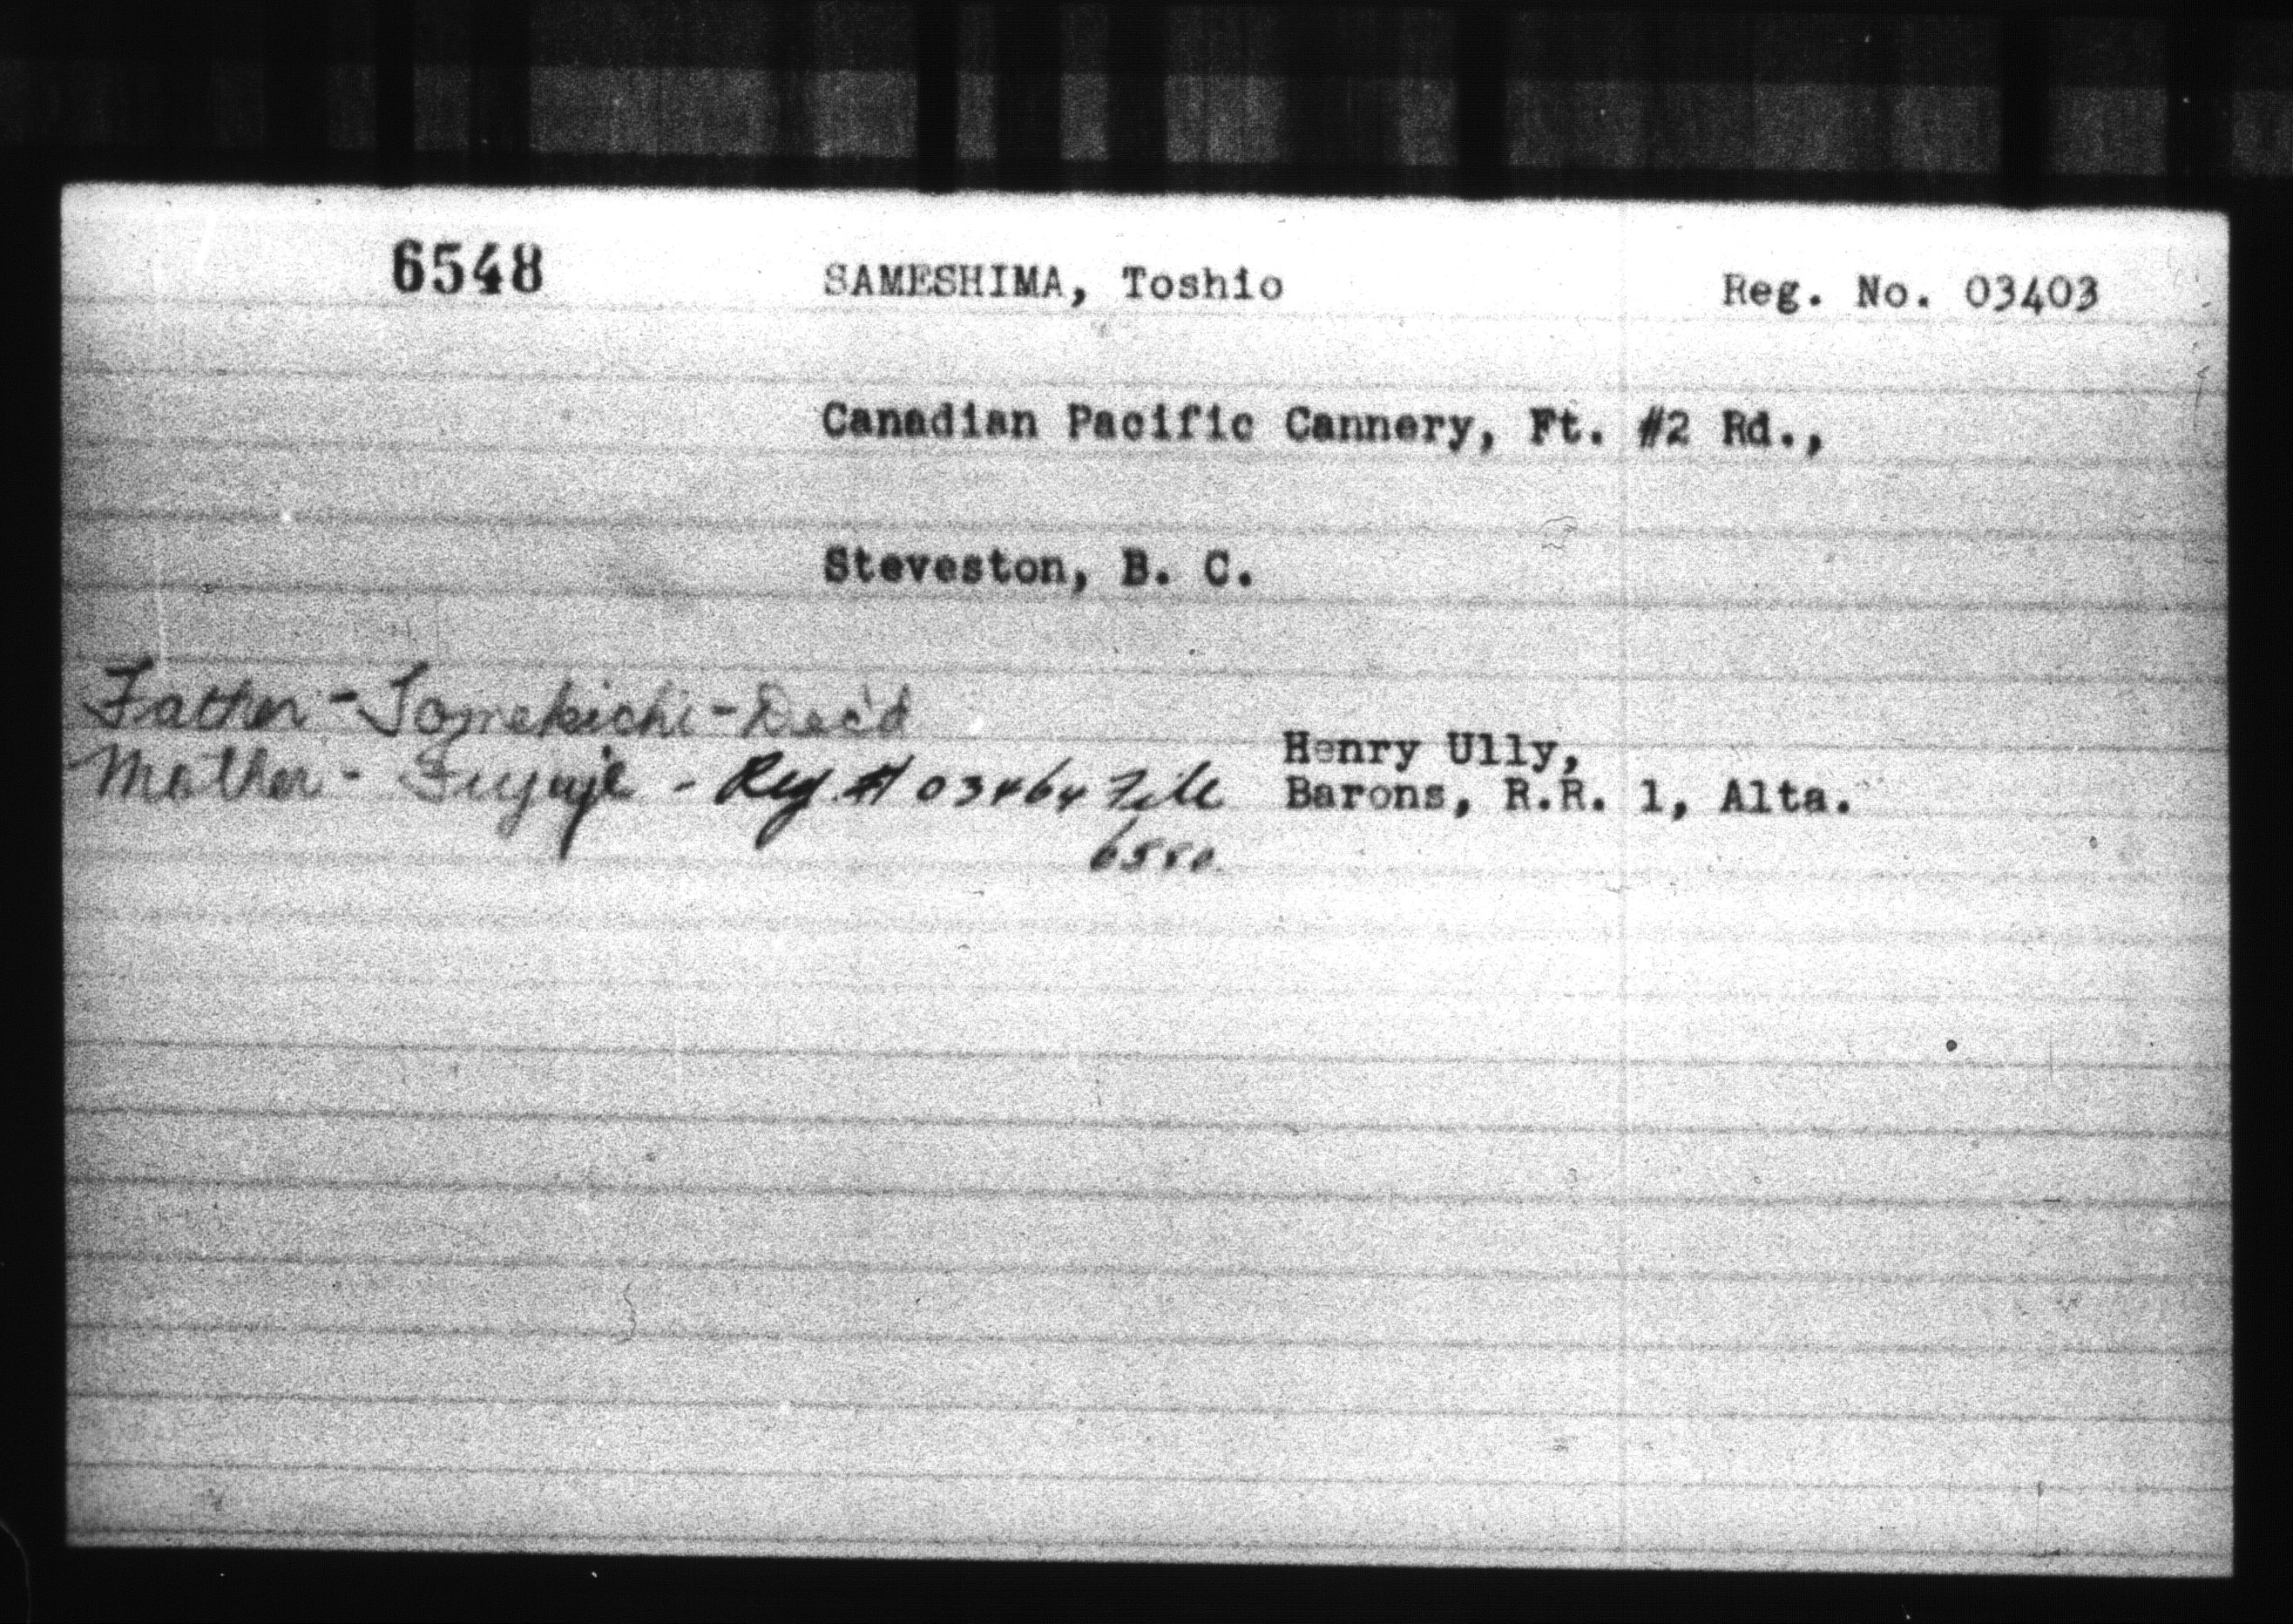 6548 SAMESHIMA, Toshio Reg. No. 03403
Canadian Pacific Cannery, Ft. #2 Rd.,
Steveston, B. C.
Father - Tomekichi - Dec'd
Mother - - Reg. # 03464 File
Henry Ully,
Barons, R.R. 1, Alta.